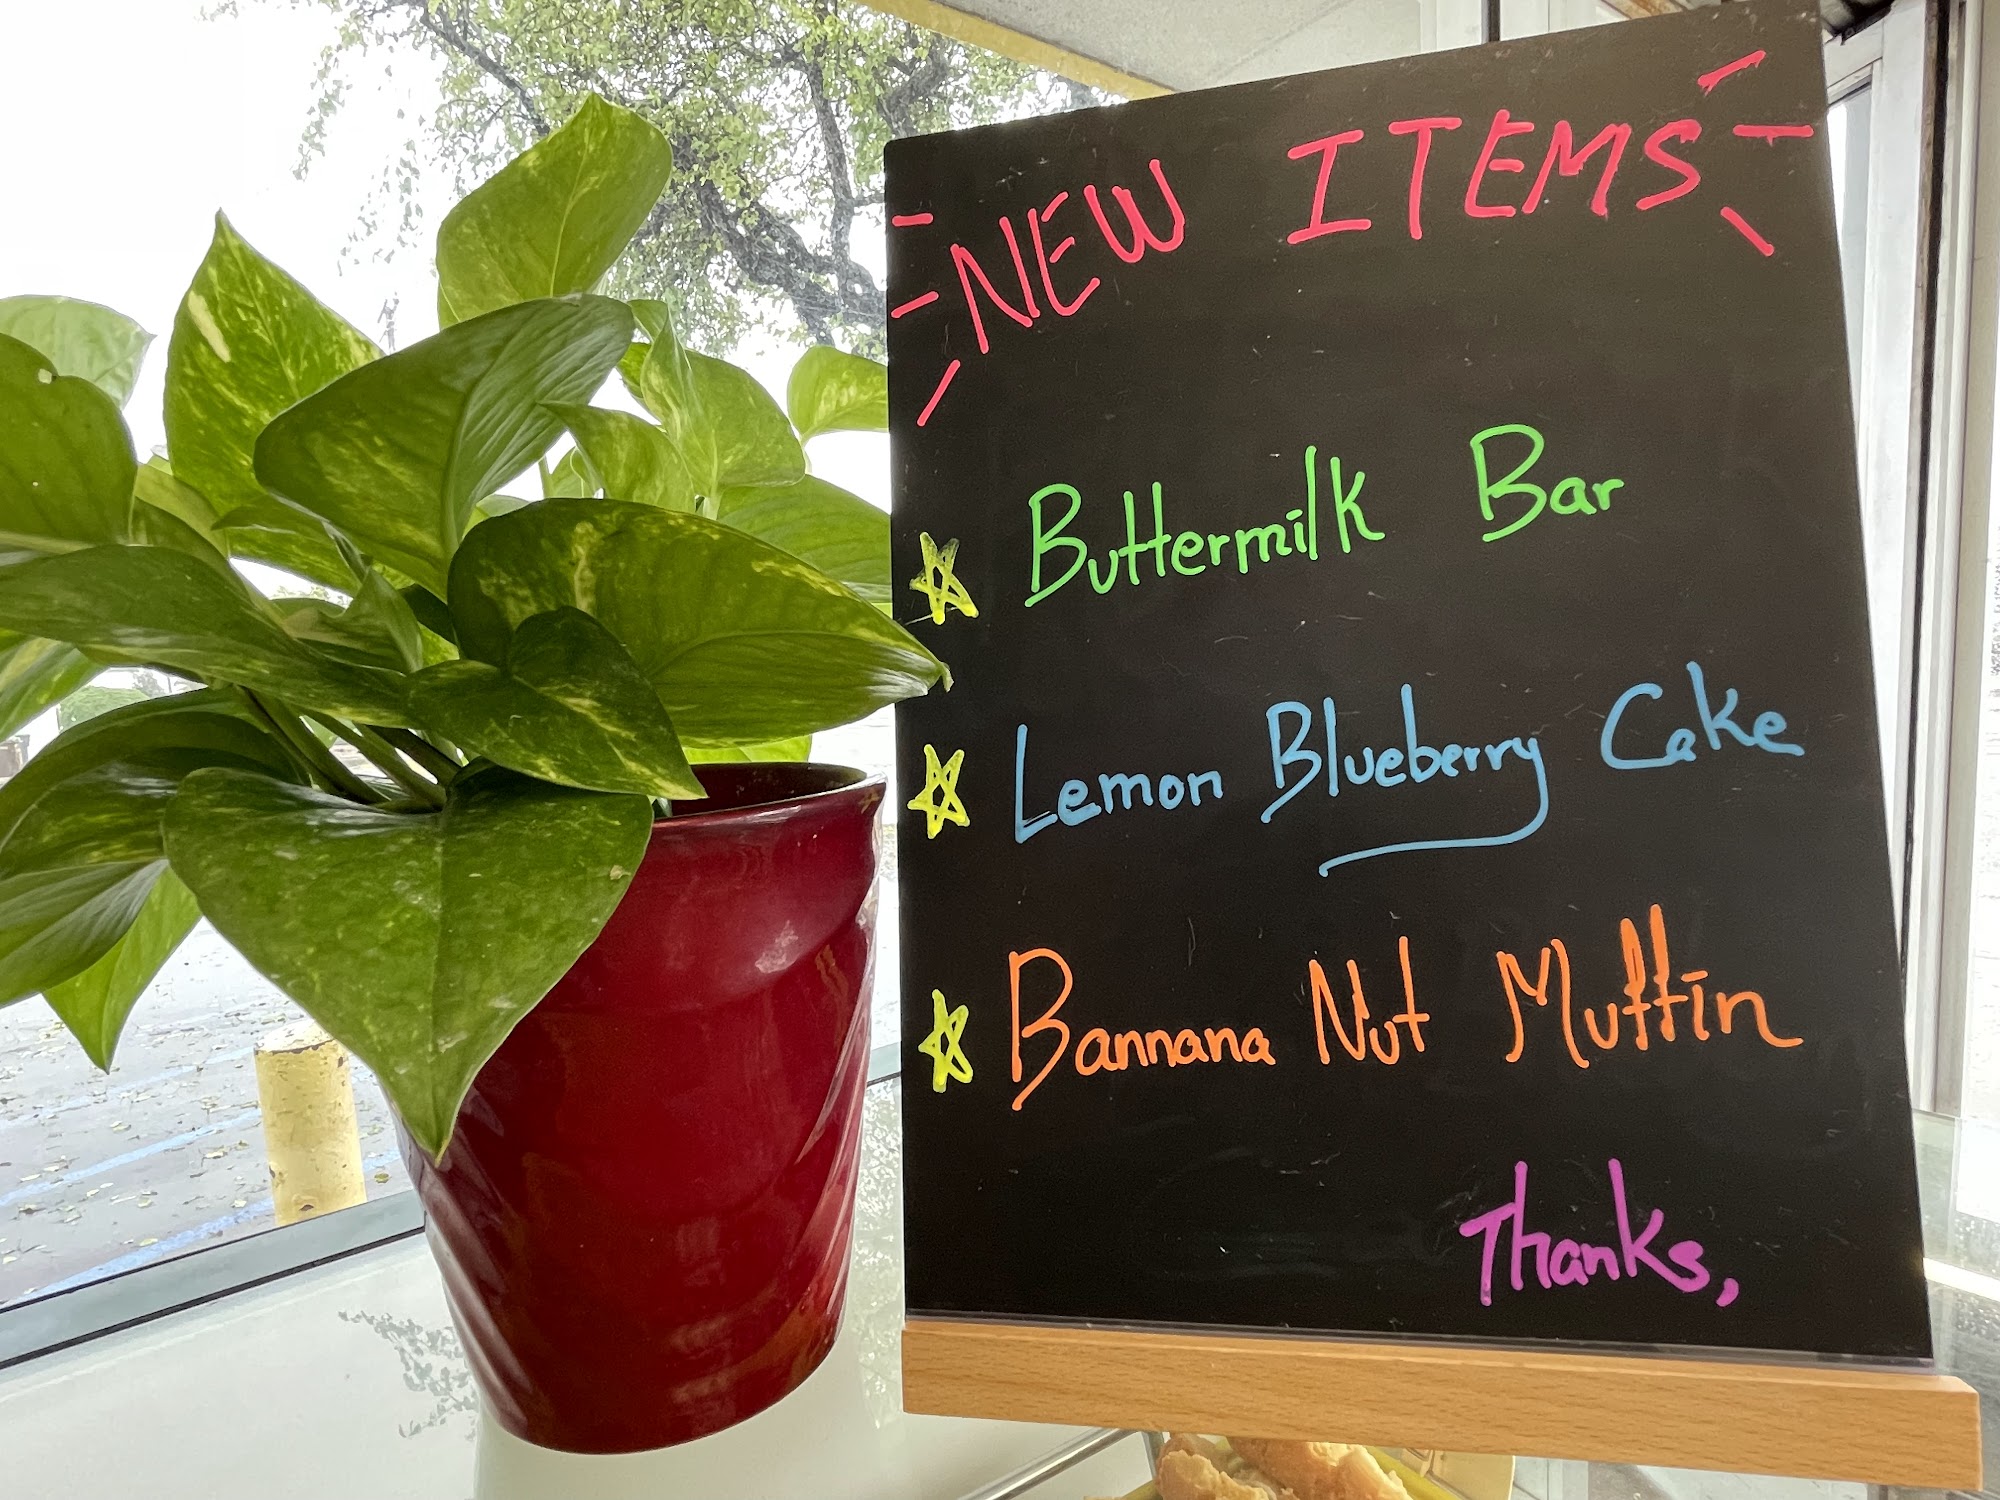 NEW ITEMS
Buttermilk Bar
Lemon Blueberry Cake
Bannana Nut Muffin
Thanks,